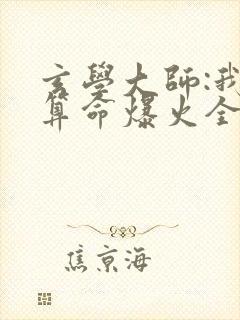 玄學大師:我
算命爆火全
焦京海